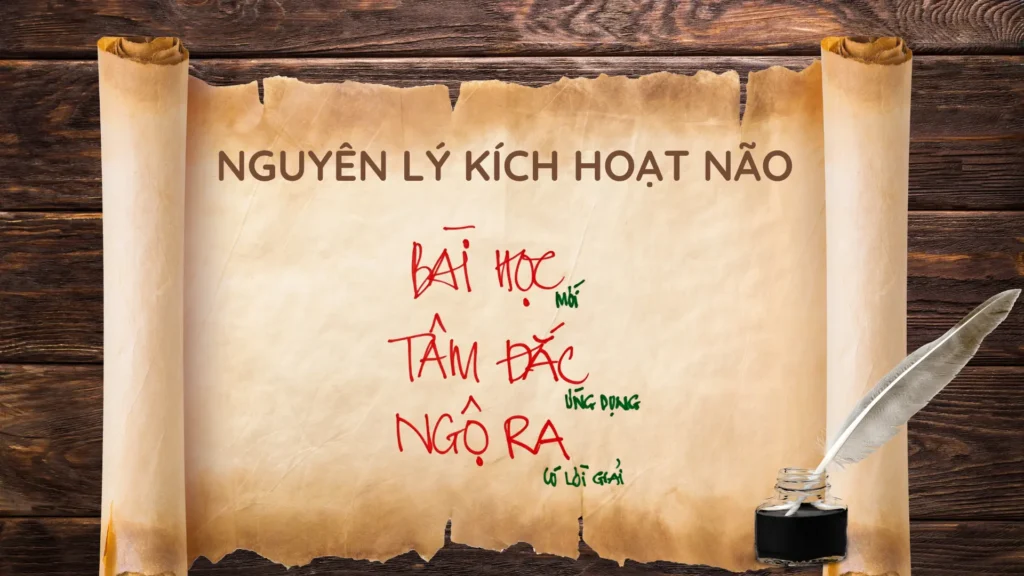 NGUYÊN LÝ KÍCH HOẠT NÃO
BÀI HỌC
MỚI
TÂM ĐẮC
ỨNG DỤNG
NGỘ RA
CÓ LỜI GIẢI